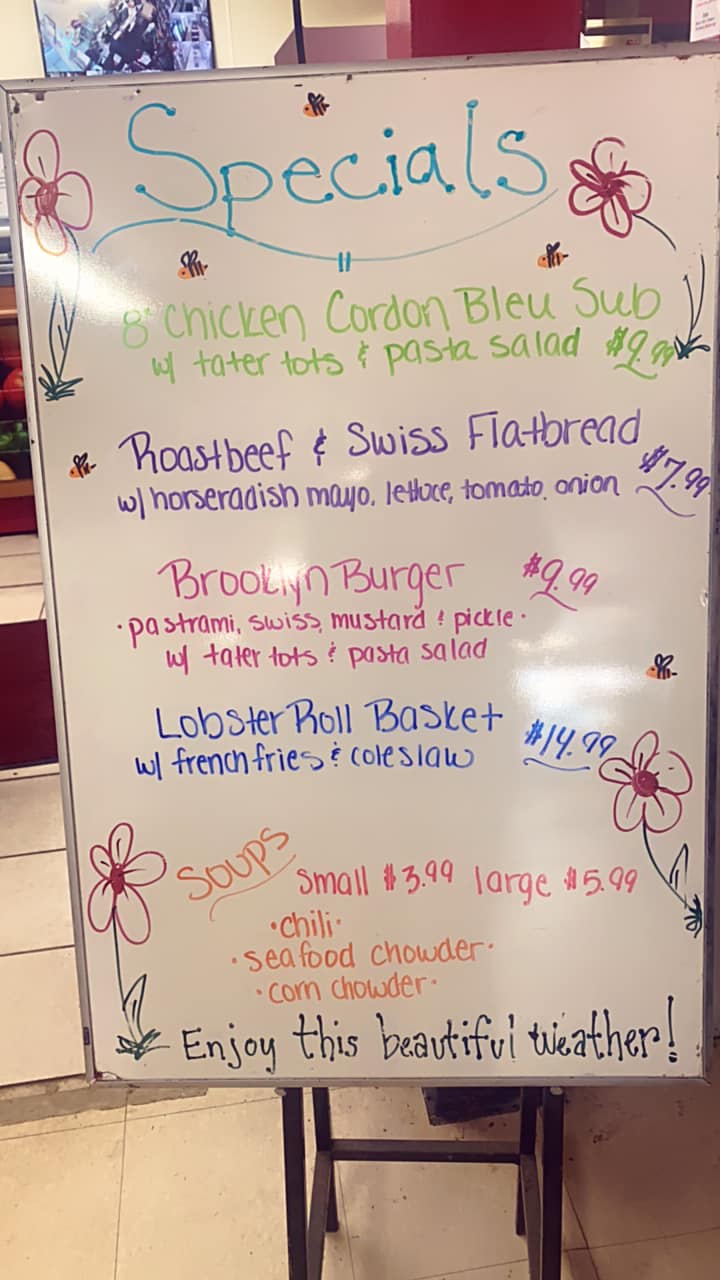 Specials
8" Chicken Cordon Bleu Sub
w/ tater tots & pasta salad $9.99
Roastbeef & Swiss Flatbread
w/ horseradish mayo, lettuce, tomato, onion $7.99
Brooklyn Burger $9.99
• pastrami, swiss, mustard & pickle •
w/ tater tots & pasta salad
Lobster Roll Basket $14.99
w/ french fries & coleslaw
Soups
Small $3.99 large $5.99
• chili •
• seafood chowder •
• corn chowder •
Enjoy this beautiful weather!